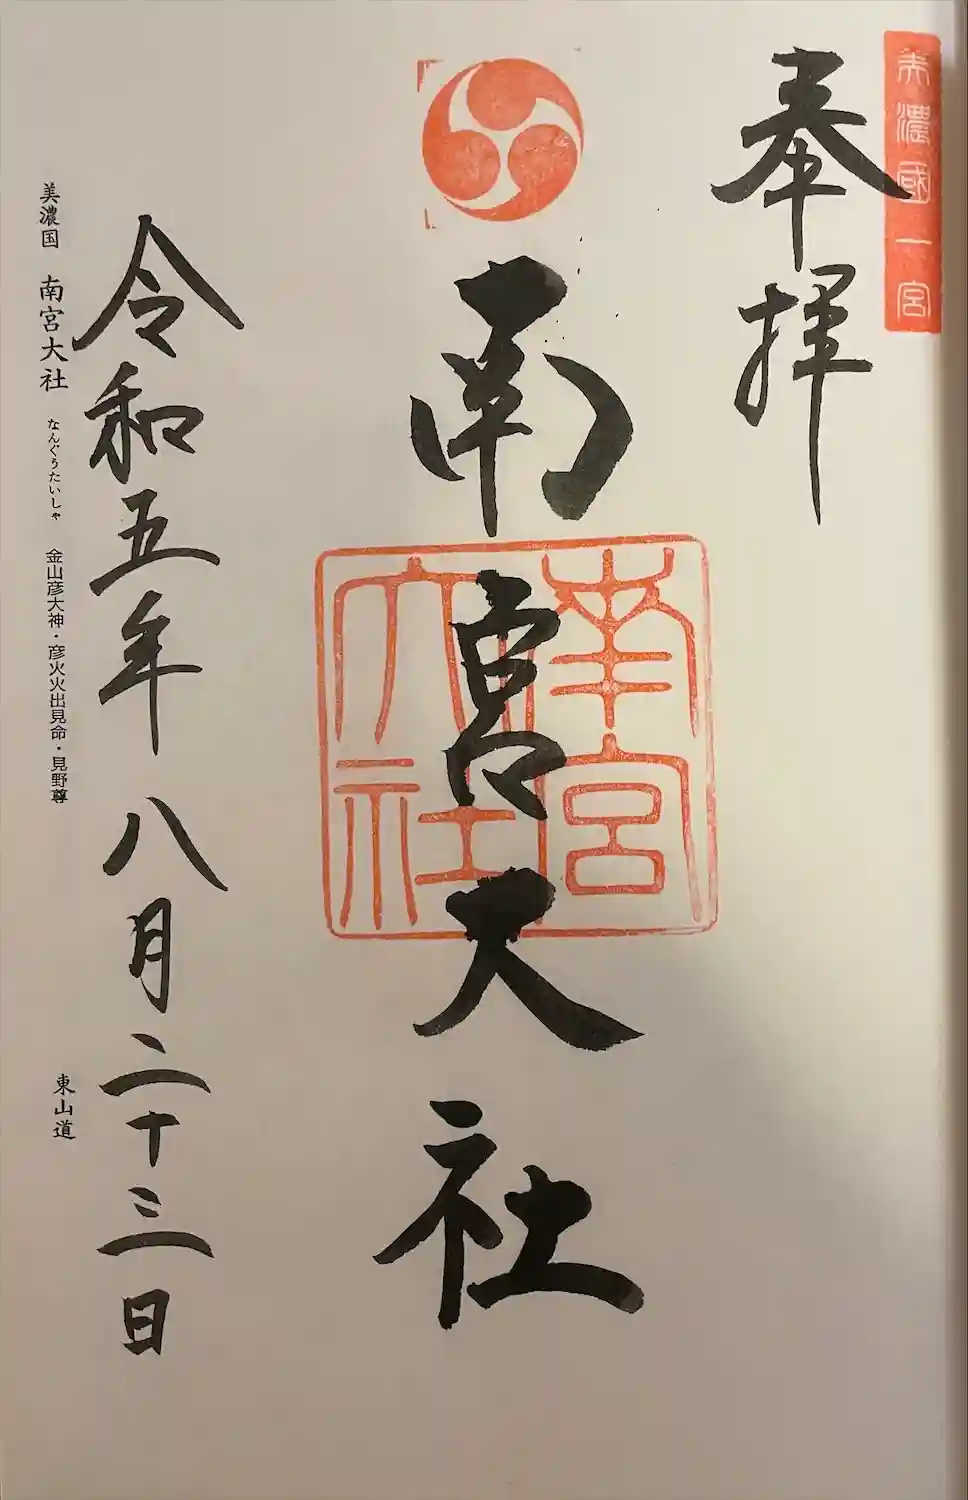 美濃國一宮
奉拝
南宮大社
南宮大社
令和五年八月二十三日
美濃国 南宮大社 なんぐうたいしゃ 金山彦大神・彦火火出見命・見野尊 東山道